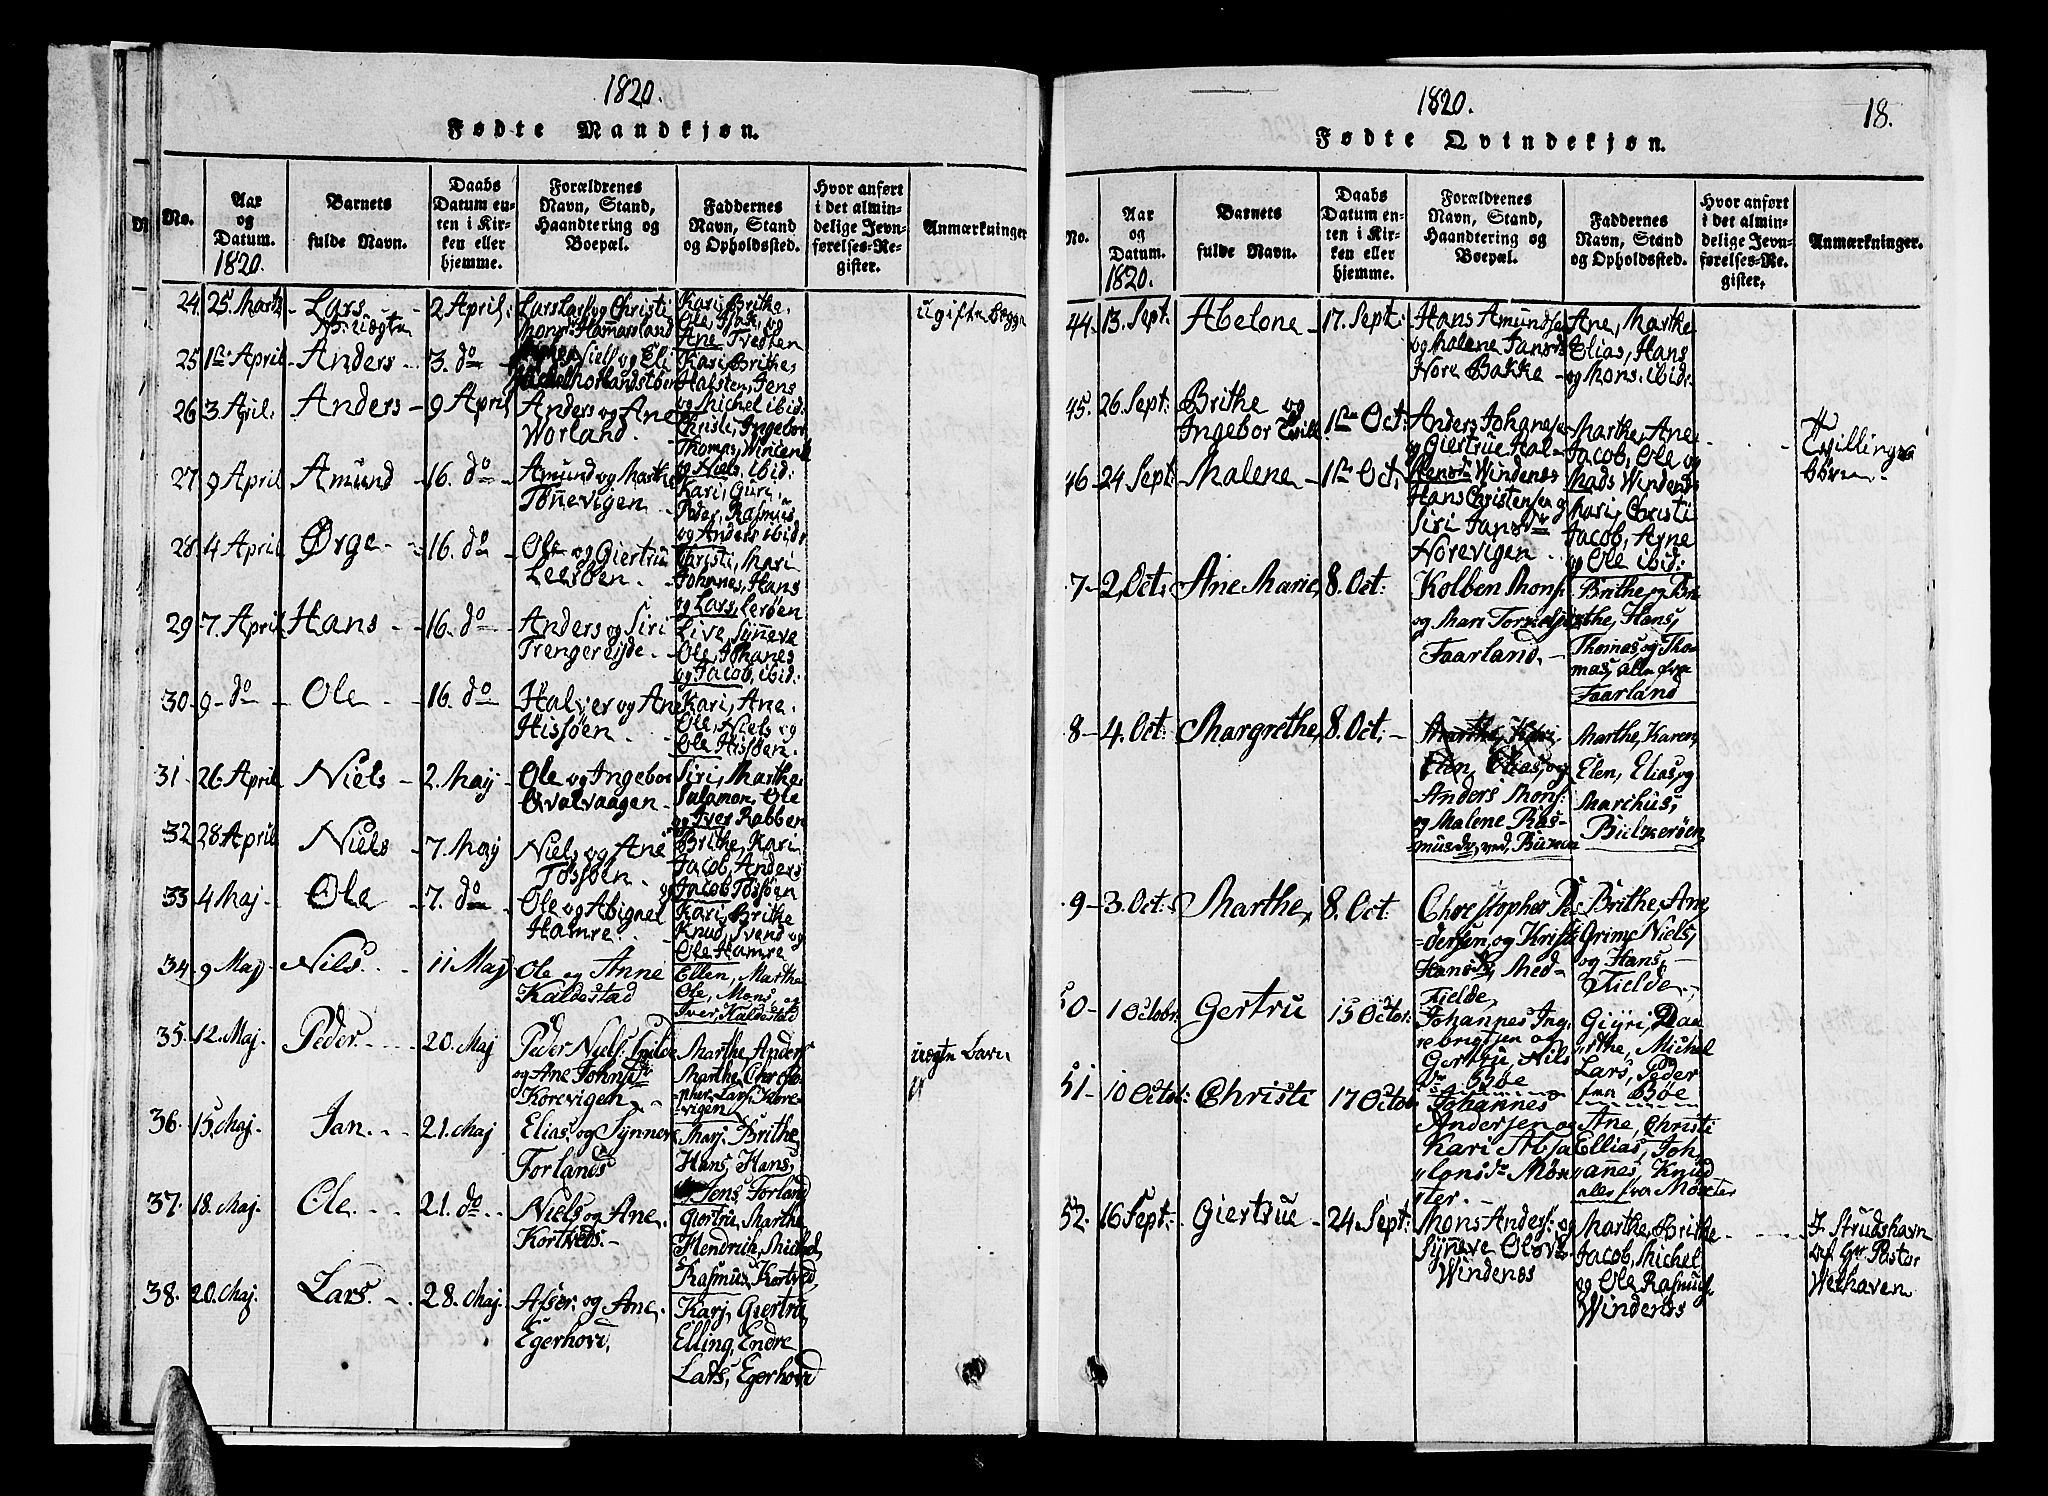 1820.
Fødte Mandkjøn.
No.
Aar og Datum.
Barnets fulde Navn.
Daabs Datum enten i Kirken eller hjemme.
Forældrenes Navn, Stand, Haandtering og Boepæl.
Faddernes Navn, Stand og Opholdssted.
Hvor anført i det almindelige Jevnførelses-Register.
Anmærkninger
1820.
24. 25. Martz - Lars 2 April: Kari, Brithe, Ole, Isak, og Ane Tvedten
25 1ste April - Anders - 3. do Niels og Eli Kari, Brithe, Halsten, Jens og Michel ibid:
26. 3 April: Anders - 9 April, Anders og Ane Worland. Christi, Ingebor Thomas, Vincent og Niels, ibid:
27. 9 April Amund - 16. do - Amund og Marthe Tønevigen - Kari, Guri, Peder, Rasmus og Anders ibid:
28. 4 April Ørge - 16. do - Ole og Giertrue Leerøen - Christi, Mari Johanes, Hans og Lars, Lerøen
29 7. April Hans - 16. do - Anders og Siri Trengereijde - Live, Synneve Ole, Johanes og Jacob, ibid:
30. 9 - do - Ole - 16. do Halver og Ane Hissøen - Kari, Ane, Ole, Niels og Ole Hissøen.
31. 26. April Niels - 2. Maij Ole og Ingebor Qvalvaagen - Siri, Marthe, Salamon, Ole og Iver Rabben
32. 28 April Niels - 7. Maij Niels og Ane Tøssøen - Brithe, Kari Jacob, Anders og Jacob Tøssøen
33. 4 Maj - Ole - 7. do Ole og Abignel Hamre. - Kari, Brithe Knud, Svend og Ole Hamre
34. 9 Maj Nils. 11 Maj Ole og Anne Kaldestad Ellen, Marthe Ole, Mons, og Iver, Kaldestad
35. 12. Maj. Peder. 20. Maj Peder Niels: og Ane Korevigen - Marthe Anders Marthe, Christopher, Lars, Korevigen
36. 15. Maj. Jan. 21. Maj Elias og Synneve Forlands Marj, Brithe, Hans, Hans, Jens Forland
37. 18. Maj. Ole. 21. do Niels og Ane, Kortveds. - Giertru, Marthe Hendrich, Michel, Rasmus, Kortved,
38. 20. Maj. Lars. - 28. Maj. Asser. og Ane. Egerhovd, Karj, Giertru Elling, Endre Lars, Egerhovd
1820.
18.
Fødte Qvindekjøn.
No.
Aar og Datum.
Barnets fulde Navn.
Daabs Datum enten i Kirken eller hjemme.
Forældrenes Navn, Stand, Haandtering og Boepæl.
Faddernes Navn, Stand og Opholdssted.
Hvor anført i det almindelige Jevnførelses-Register.
Anmærkninger.
1820.
44. 13. Sept: Abelone - 17. Sept: Hans Amundsen og Malene Jansdr Nore Bakke - Ane, Marthe Elias, Hans og Mons, ibid:
45. 26. Sept: Brithe og Ingebor 1ste Oct: Anders Johanesen og Giertrue Halstensdr Windenæs Marthe, Ane Jacob, Ole og Mads Windenæs
46 - 24 Sept: Malene - 1ste Oct: Hans Christensen og Siri Jansdr Norevigen - Mari, Christi Jacob, Arne og Ole ibid:
7 - 2, Oct: Ane Marie, 8. Oct: Kolben Mons: og Mari Faarland. - Brithe, og Brithe, Hans, Thomas og Thomas, alle fra Faarland
8 - 4. Oct: Margrethe, 8. Oct: - Elen, Elias, og Anders Mons: og Malene Rasmusdr, ved, Marthe, Karen, Elen, Elias, og Marchus, Bielkerøen,
9 - 3. Oct: - Marthe, 8. Oct: Christopher Pedersen, og Hansdr, Medfielde, Brithe, Ane, Grim, Niels, og Hans, - Fielde.
50 - 1 Octobr: Gertru 15 Octor: Johannes Ingebrigtsen og Gertru, Nilsdr Bøe Giyri, Michel Lars, Peder fra Bøe
51 - 10 Octob: Christi 17 Octob: Johannes Andersen og Kari Absalonsdr Mønster. - Ane, Christi Ellias, Johannes, Knud alle fra Mønster
52. 16 Sept: - Giertrue - 24 Sept: Mons Anders: og Synneve Olsdr Windenæs Marthe, Brithe Jacob, Michel og Ole Rasmus, Windenæs
J. Strudshavn af Hr. Pastor Welhaven